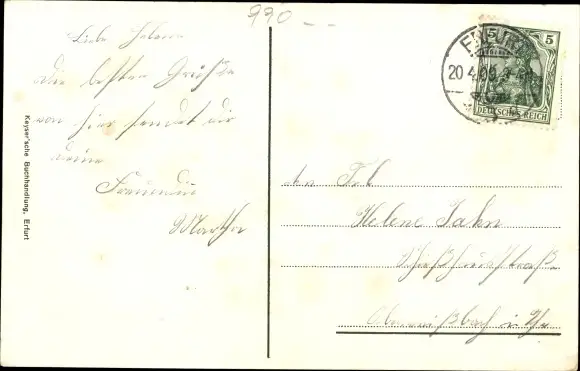 930
Liebe Helene
Die besten Grüße
von hier sendet dir
deine
Freundin
Martha
Keyser'sche Buchhandlung, Erfurt
ERFURT
20.4.
5 5
DEUTSCHES REICH
An Frl.
Helene Jahn
in Th.